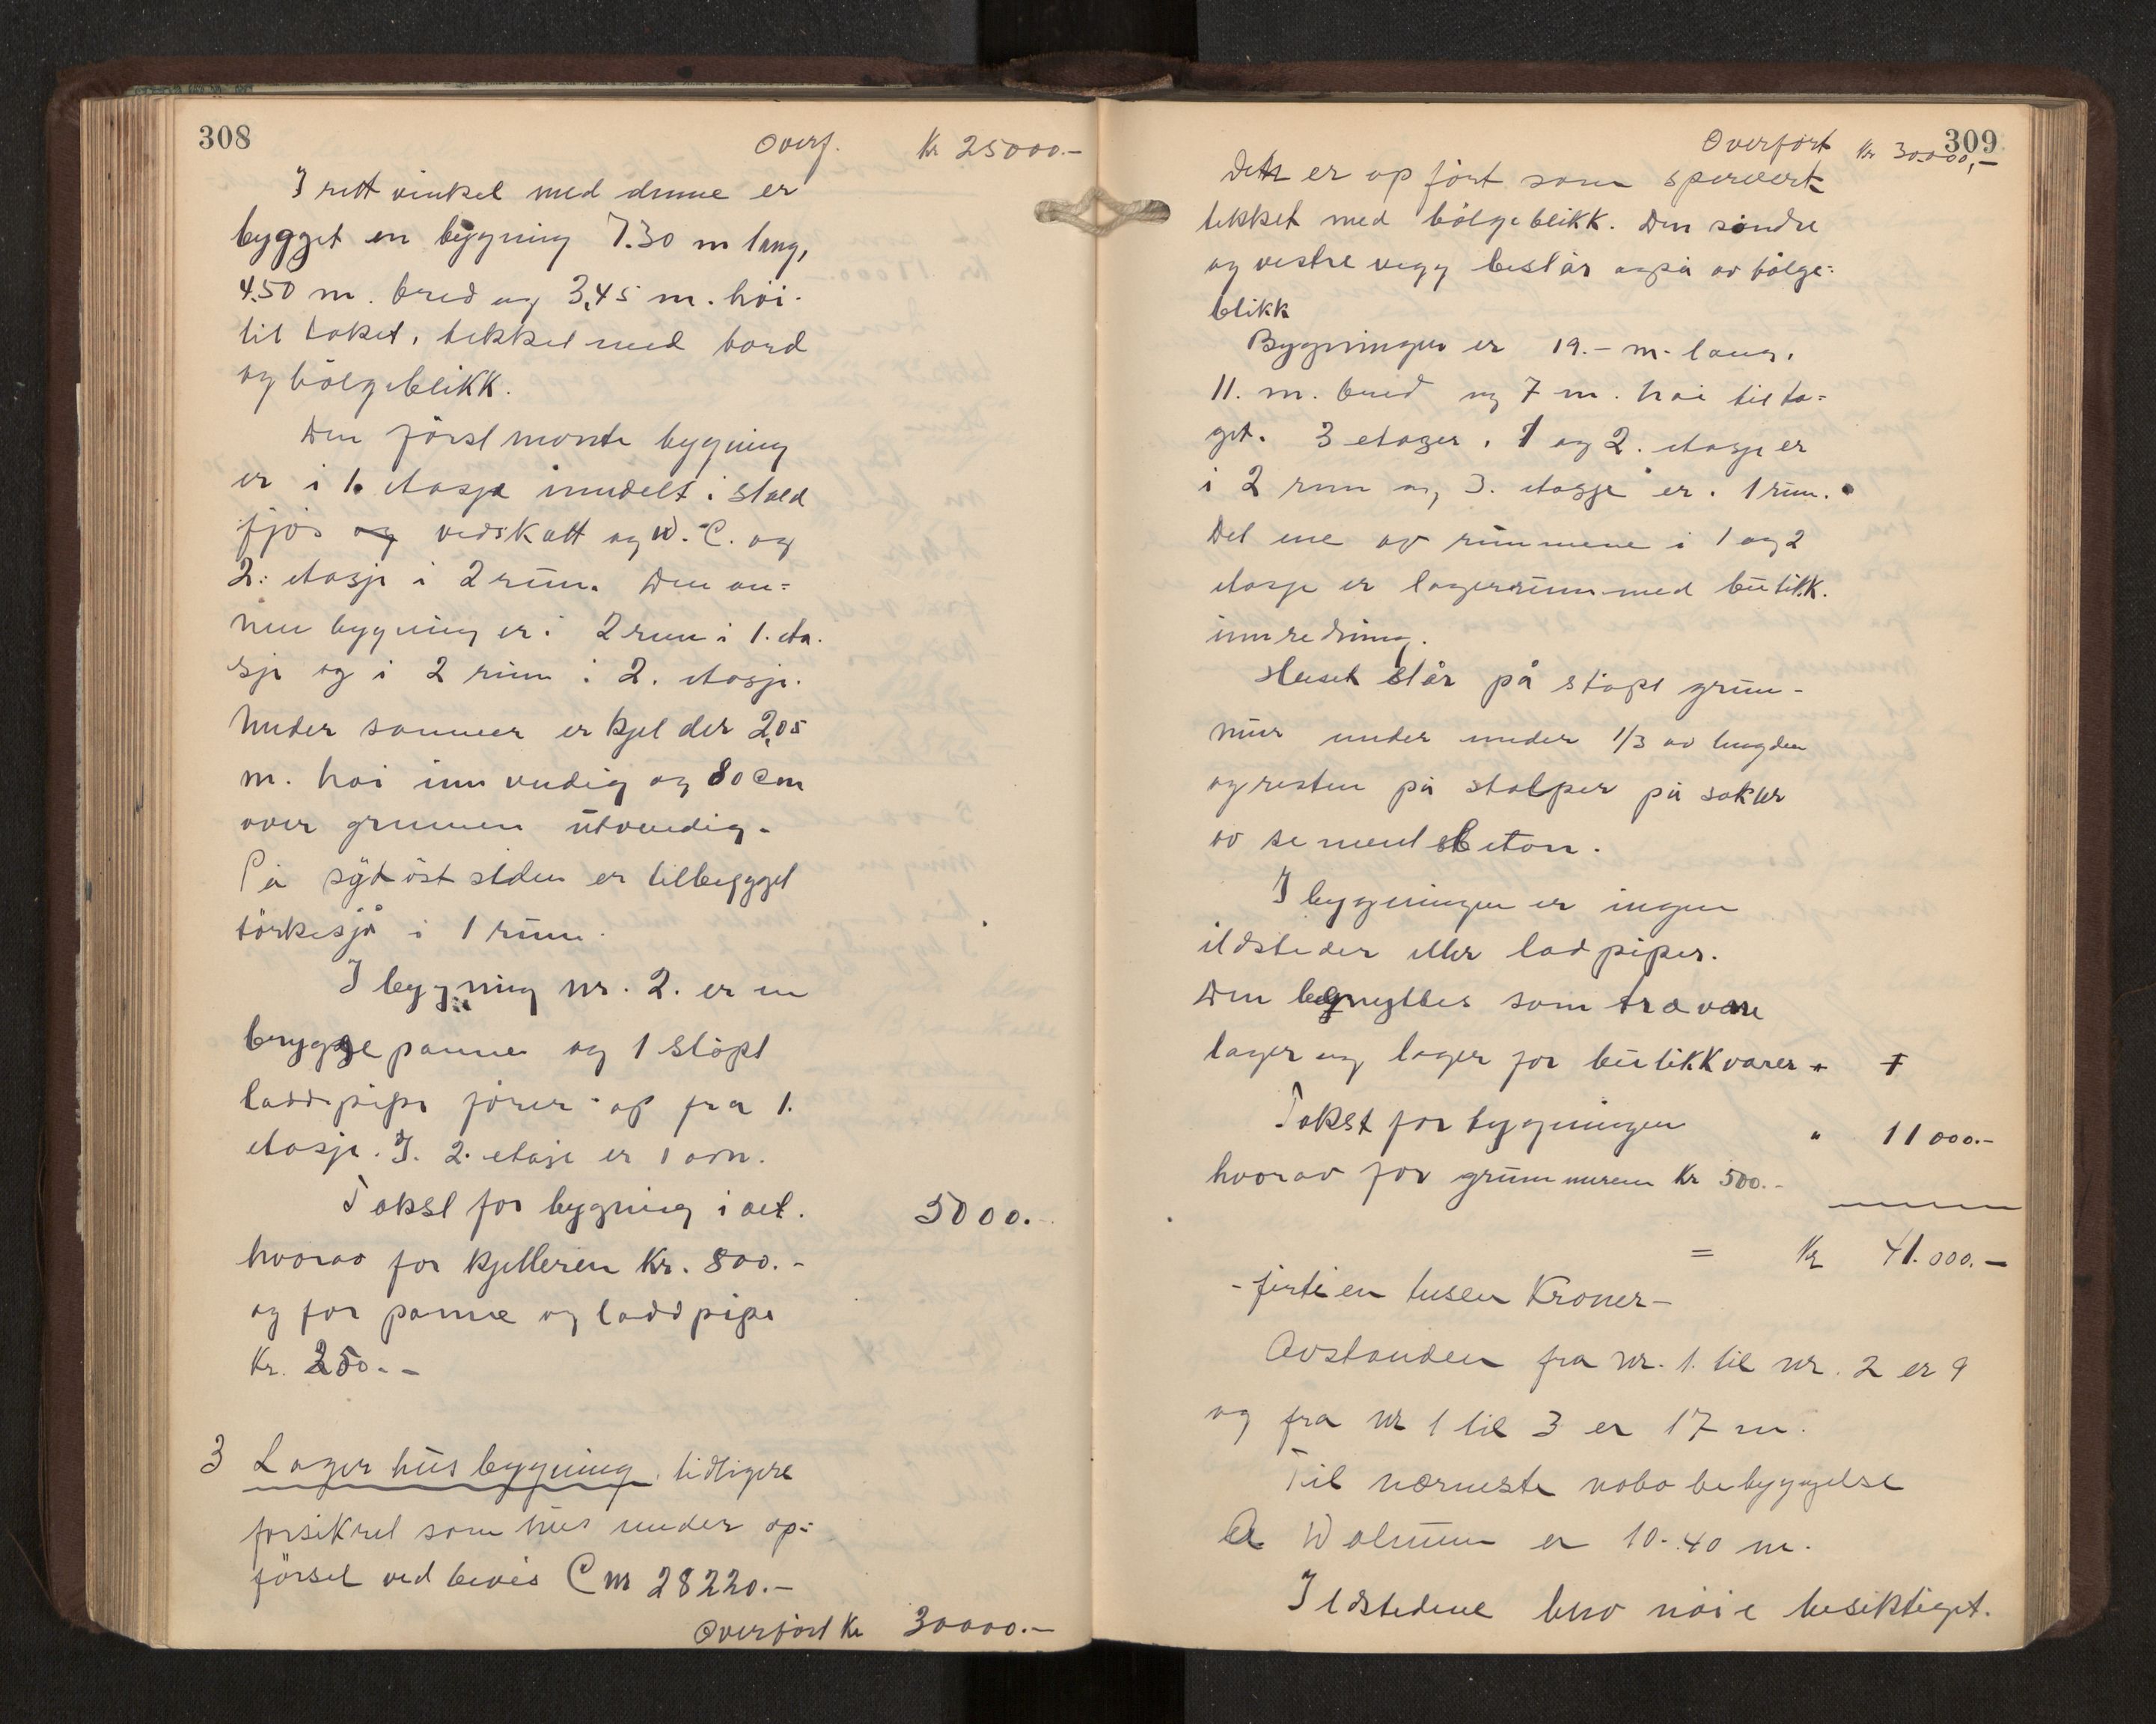 308
Overf. Kr 25000.-
I rett vinkel med denne er
bygget en bygning 7.30 m lang,
4.50 m. bred og 3,45 m. höi
til taket, tekket med bord
og bölgeblikk.
Den först nevnte bygning
er i 1. etasje inndelt i stald
fjös og vedskått og W.C. og
2: etasje i 2 rum. Den an=
nen bygning er i 2 rum i 1. eta.
sje og i 2 rum i 2. etasje.
Under sammer er kjelder 2,05
m. höi innvendig og 80 cm
over grunnen utvendig.
På syd öst siden er tilbygget
törkesjå i 1 rum.
I bygning nr. 2. er en
bryggepanne og 1 stöpt
laddpipe förer op fra 1.
etasje. I. 2. etasje er 1 ovn.
Takst for bygning i alt. 5000.-
hvorav for kjelleren Kr. 800.-
og for panne og laddpipe
Kr. 250.-
3 Lagerhusbygning, tidligere
forsikret som hus under op=
försel ved bevis C nr 28220.-
Overfört Kr 30000.-
309
Overfört Kr 30.000,-
Dette er op fört som sperverk
tekket med bölgeblikk. Den söndre
og vestre vegg består også av bölge=
blikk
Bygningen er 19.- m. lang,
11. m. bred og 7 m. höi til ta=
get. 3 etager. 1 og 2. etasje er
i 2 rum og 3. etasje er i 1 rum.
Det ene av rummene i 1 og 2
etasje er lagerrum med butikk.
innredning.
Huset står på stöpt grun-
mur under under 1/3 av lengden
og resten på stolper på sokler
av sementbeton.
I bygningen er ingen
ildsteder eller ladpiper.
Den benyttes som trævare
lager og lager for butikkvarer
Takst for bygningen " 11000.-
hvorav for grunnmuren Kr 500.-
= Kr 41.000.-
- firtien tusen Kroner -
Avstanden fra nr. 1. til nr. 2 er 9
og fra nr 1 til 3 er 17 m.
Til nærmeste nabobebyggelse
A Walnum er 10.40 m.
Ildstedene blev nöie besiktiget.